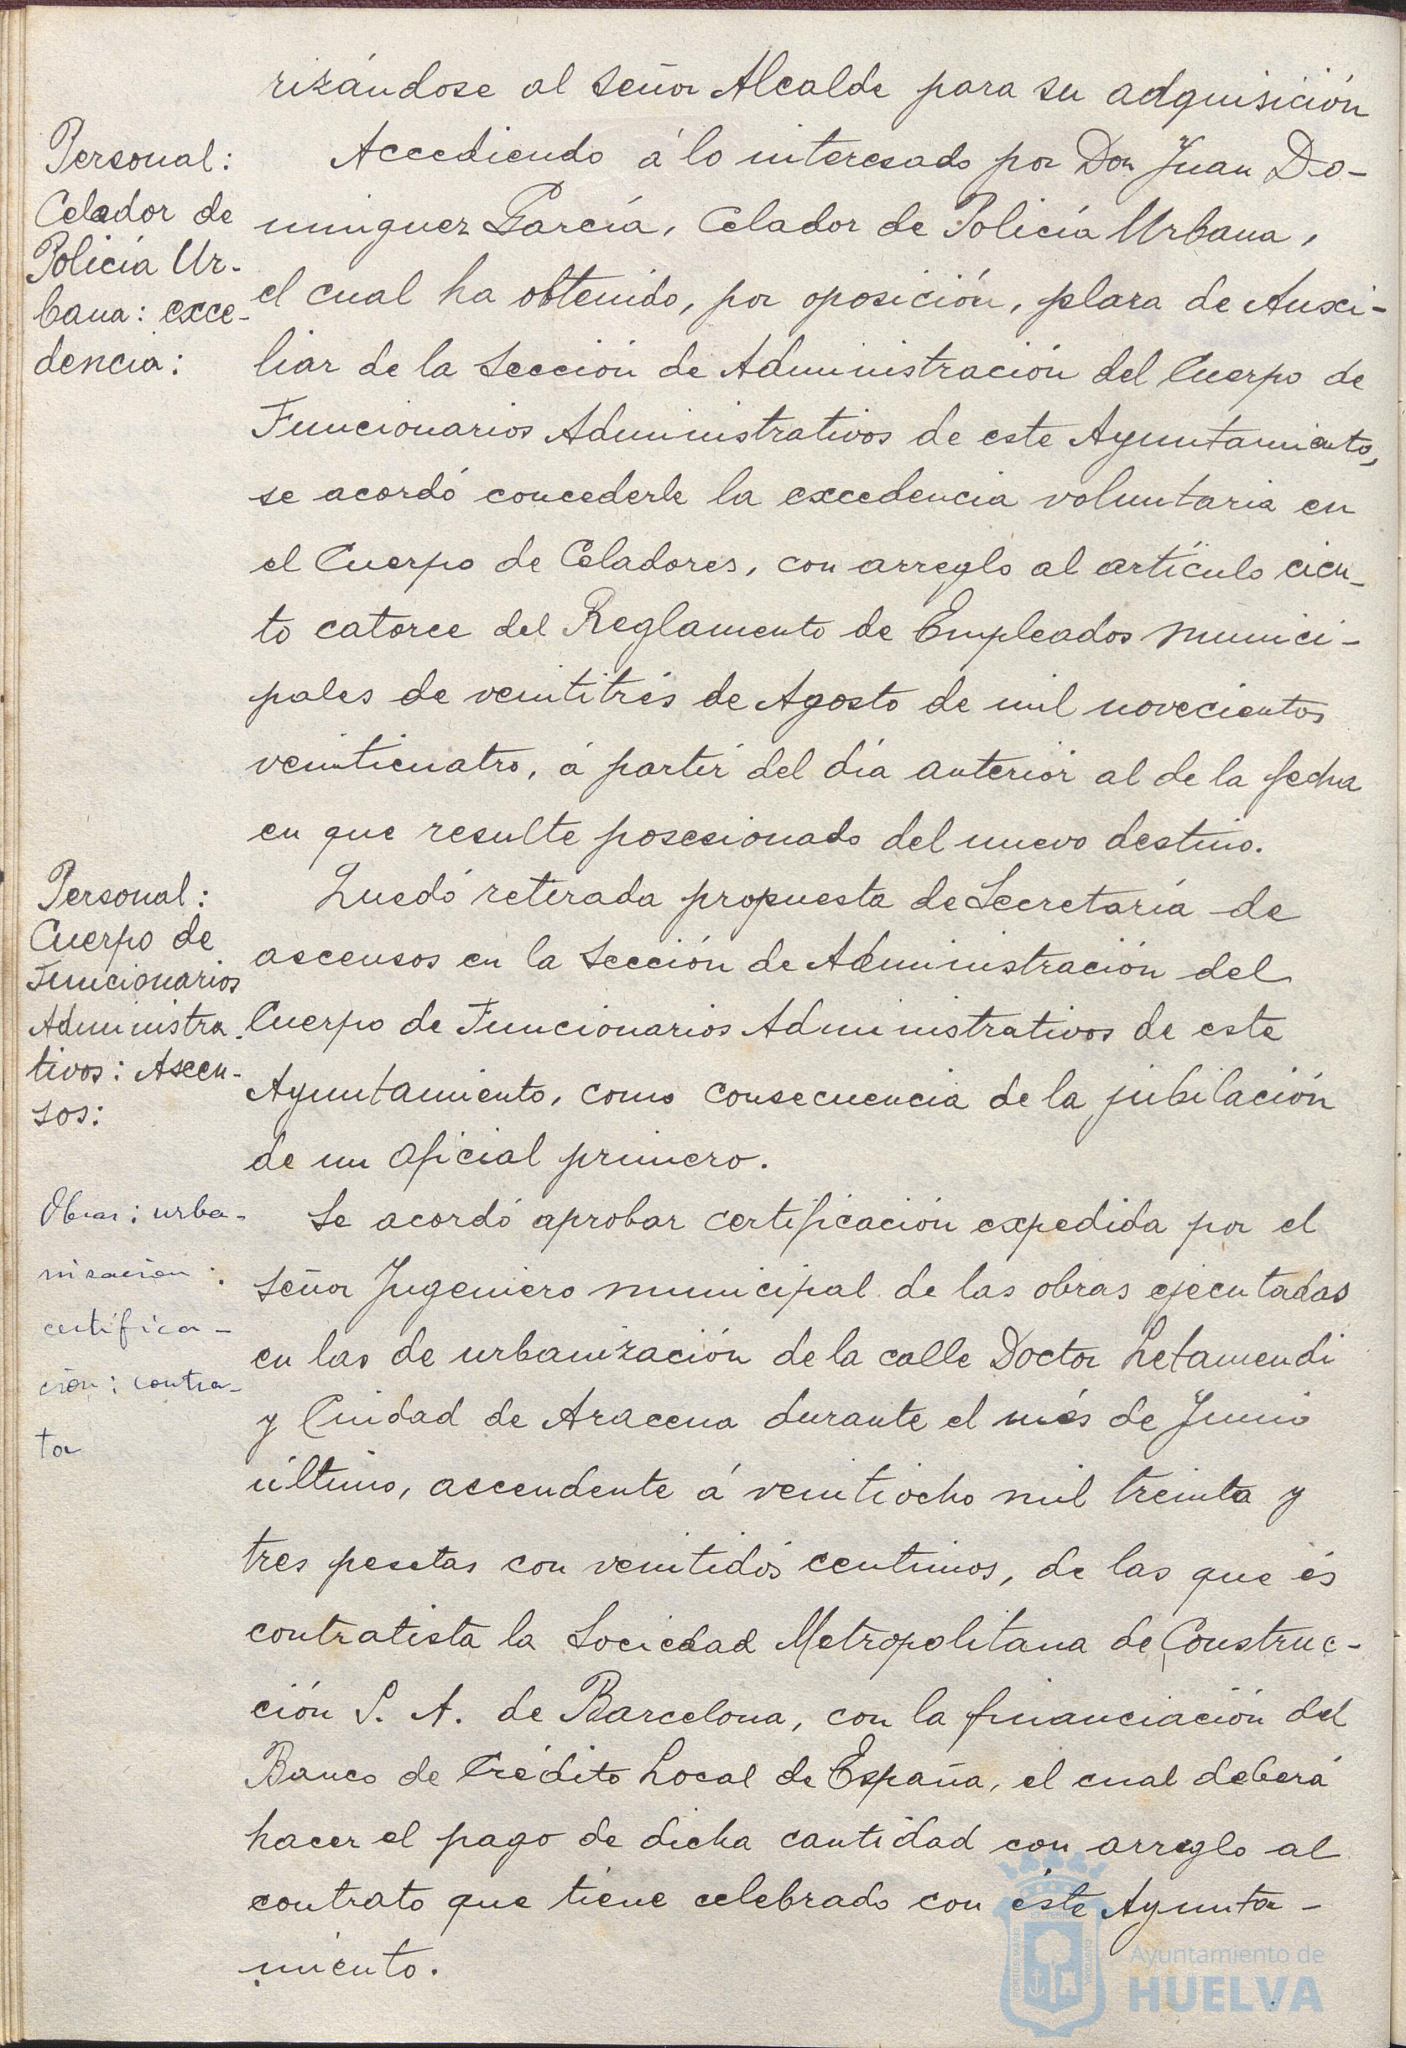 rizándose al señor Alcalde para su adquisición
Personal:
Celador de
Policía Ur-
bana: exce-
dencia:
Accediendo á lo interesado por Don Juan Do-
minguez García, Celador de Policía Urbana,
el cual ha obtenido, por oposición, plaza de Auxi-
liar de la Sección de Administración del Cuerpo de
Funcionarios Administrativos de este Ayuntamiento,
se acordó concederle la excedencia voluntaria en
el Cuerpo de Celadores, con arreglo al artículo cien-
to catorce del Reglamento de Empleados munici-
pales de veintitrés de Agosto de mil novecientos
veinticuatro, á partir del día anterior al de la fecha
en que resulte posesionado del nuevo destino.
Personal:
Cuerpo de
Funcionarios
Administra-
tivos: Ascen-
sos:
Quedó retirada propuesta de Secretaría de
ascensos en la Sección de Administración del
Cuerpo de Funcionarios Administrativos de este
Ayuntamiento, como consecuencia de la jubilación
de un oficial primero.
Obras: urba-
nización:
certifica-
ción: contra-
ta
Se acordó aprobar certificación expedida por el
señor Ingeniero municipal de las obras ejecutadas
en las de urbanización de la calle Doctor Letamendi
y Ciudad de Aracena durante el més de Junio
último, ascendente á veintiocho mil treinta y
tres pesetas con veintidós centimos, de las que és
contratista la Sociedad Metropolitana de Construc-
ción S. A. de Barcelona, con la financiación del
Banco de Crédito Local de España, el cual deberá
hacer el pago de dicha cantidad con arreglo al
contrato que tiene celebrado con éste Ayunta-
miento.
Ayuntamiento de
HUELVA